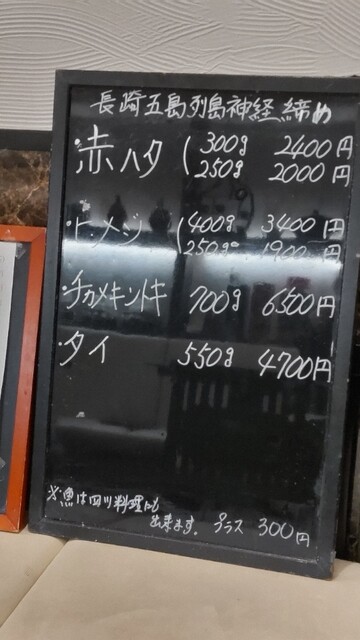 長崎五島列島神経締め
・赤ハタ ( 300g 2400円
250g 2000円
・ドンメジ ( 400g 3400円
250g 1900円
・チカメキントキ 700g 6500円
・タイ 550g 4700円
※魚は四川料理にも
出来ます。プラス 300円